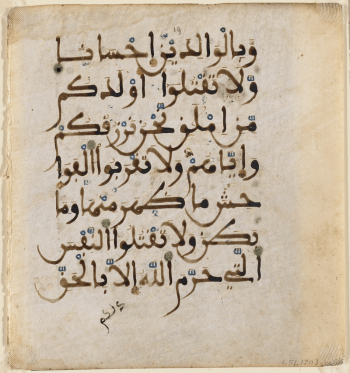 وبالوالدين احسانا
ولا تقتلوا اولدكم
من املق نحن نرزقكم
واياهم ولا تقربوا الفوا
حش ما ظهر منها وما
بطن ولا تقتلوا النفس
التي حرم الله الا بالحق
ذلكم